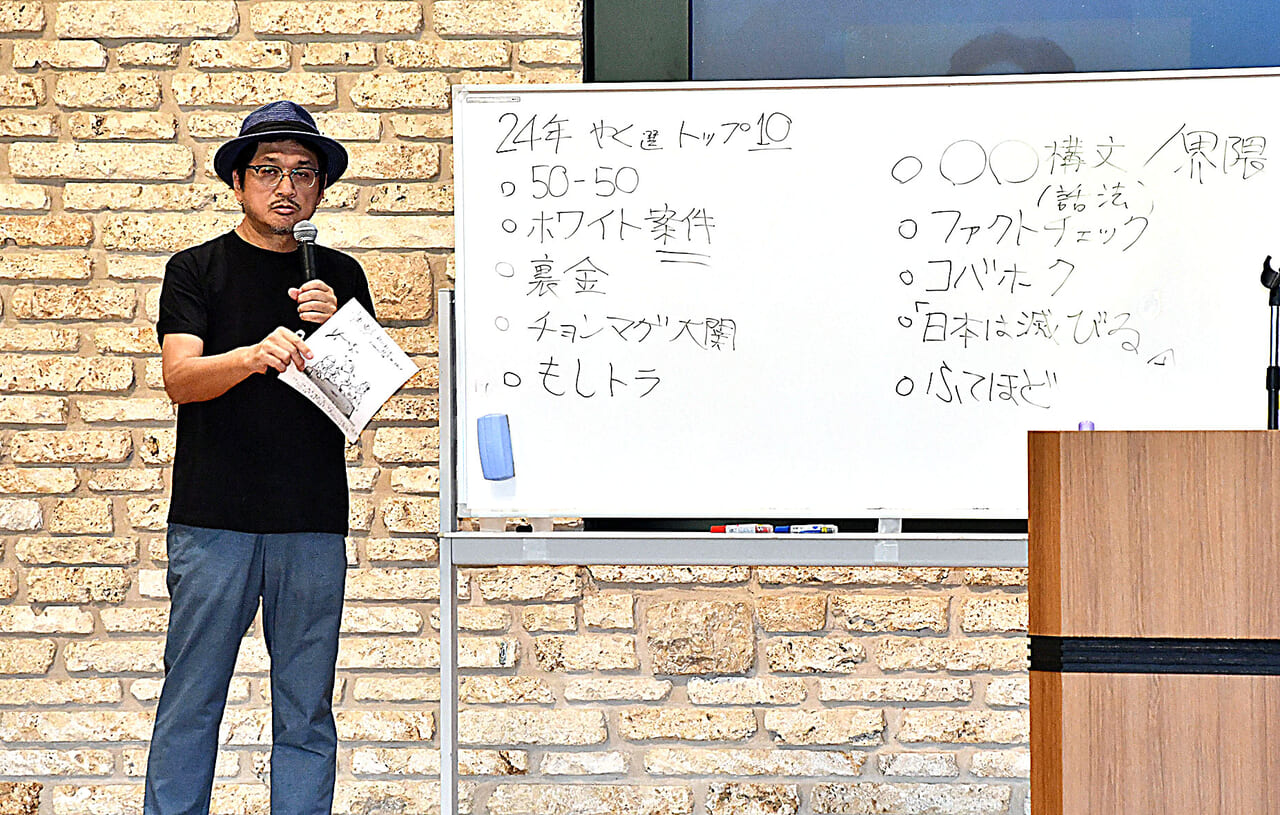 24年 やく選 トップ10
○ 50-50
○ ホワイト案件
○ 裏金
○ チョンマゲ大関
○ もしトラ
○ ○○構文/界隈
(話法)
○ ファクトチェック
○ コバホーク
○「日本は滅びる」
○ ふてほど